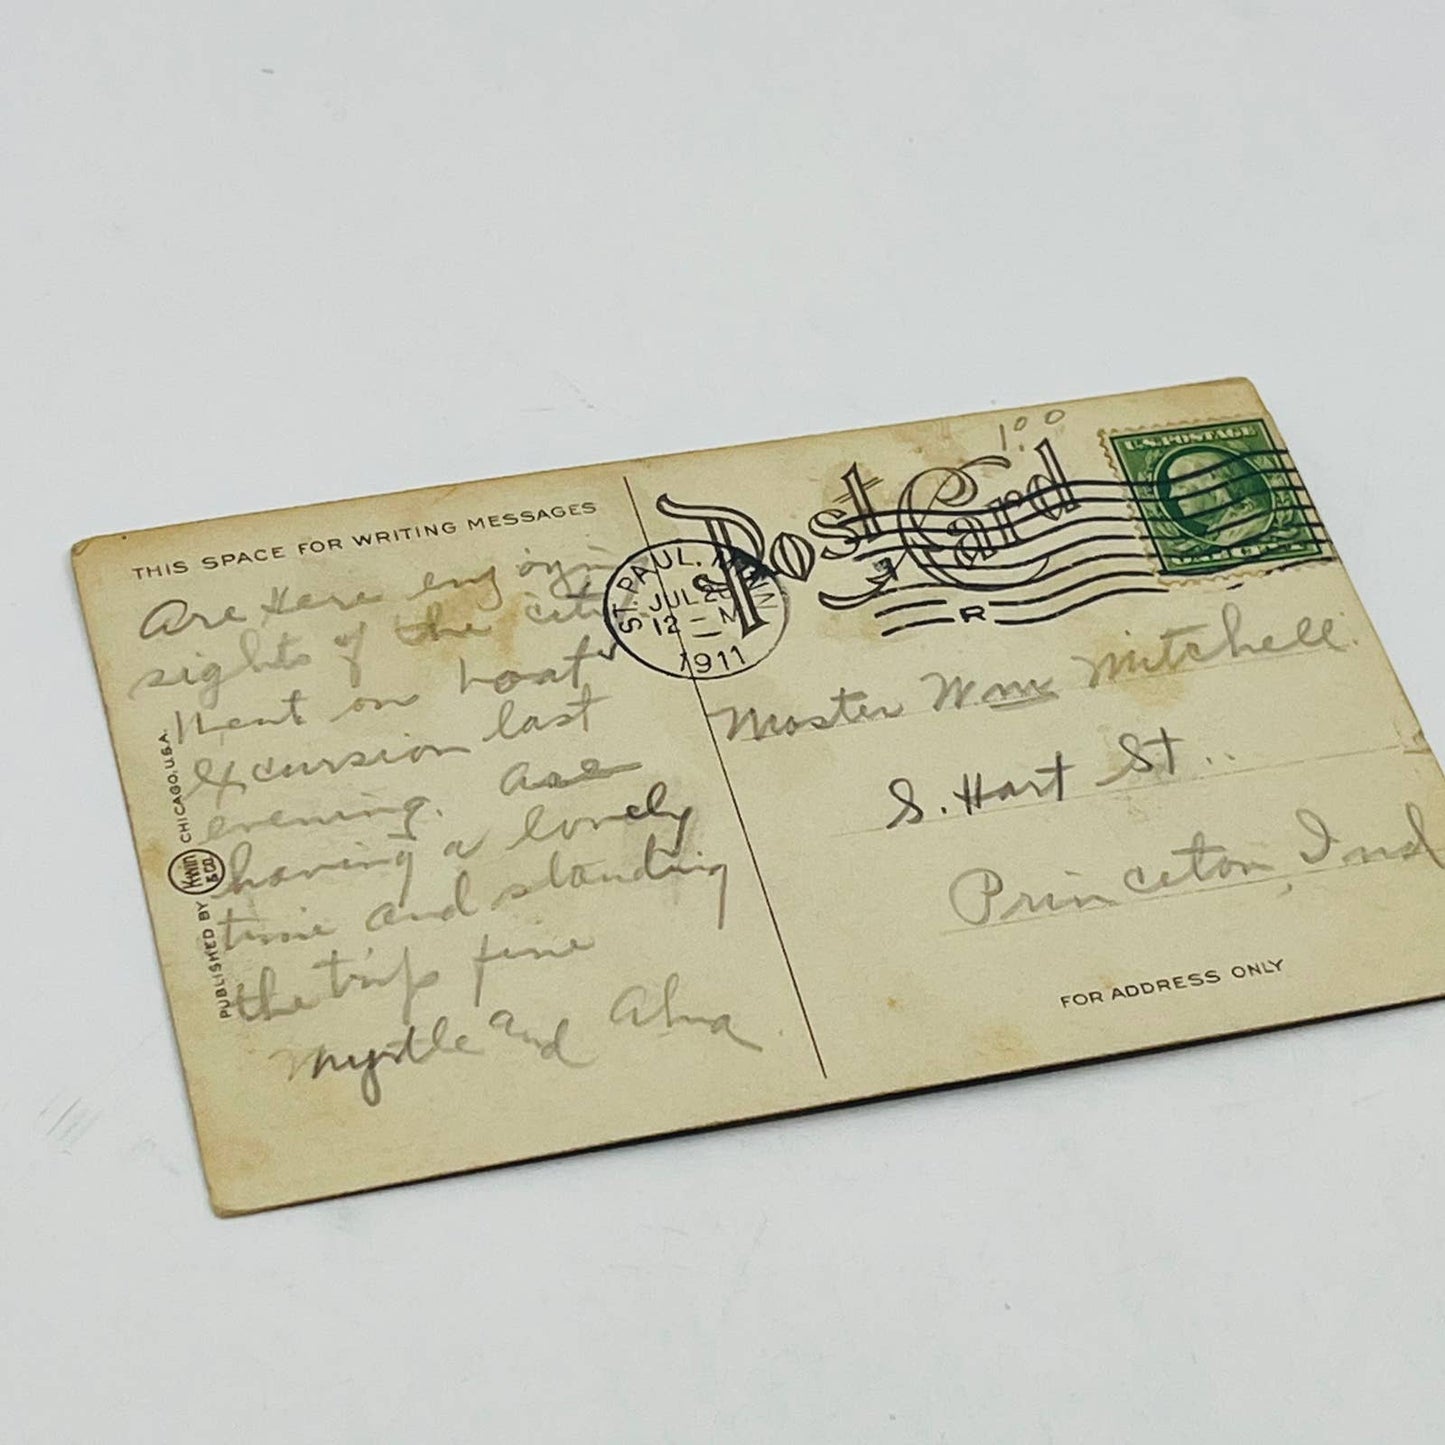 THIS SPACE FOR WRITING MESSAGES
Are Here enjoying
sights of the city
Went on boat
excursion last
evening. Are
having a lovely
time and standing
the trip fine
Myrtle and Alma
PUBLISHED BY Kwin & Co. CHICAGO, U.S.A.
1.00
Post Card
U.S. POSTAGE
ST. PAUL. MINN
JUL 2
12 - M
1911
R
Master Wm Mitchell.
S. Hart St..
Princeton, Ind
FOR ADDRESS ONLY